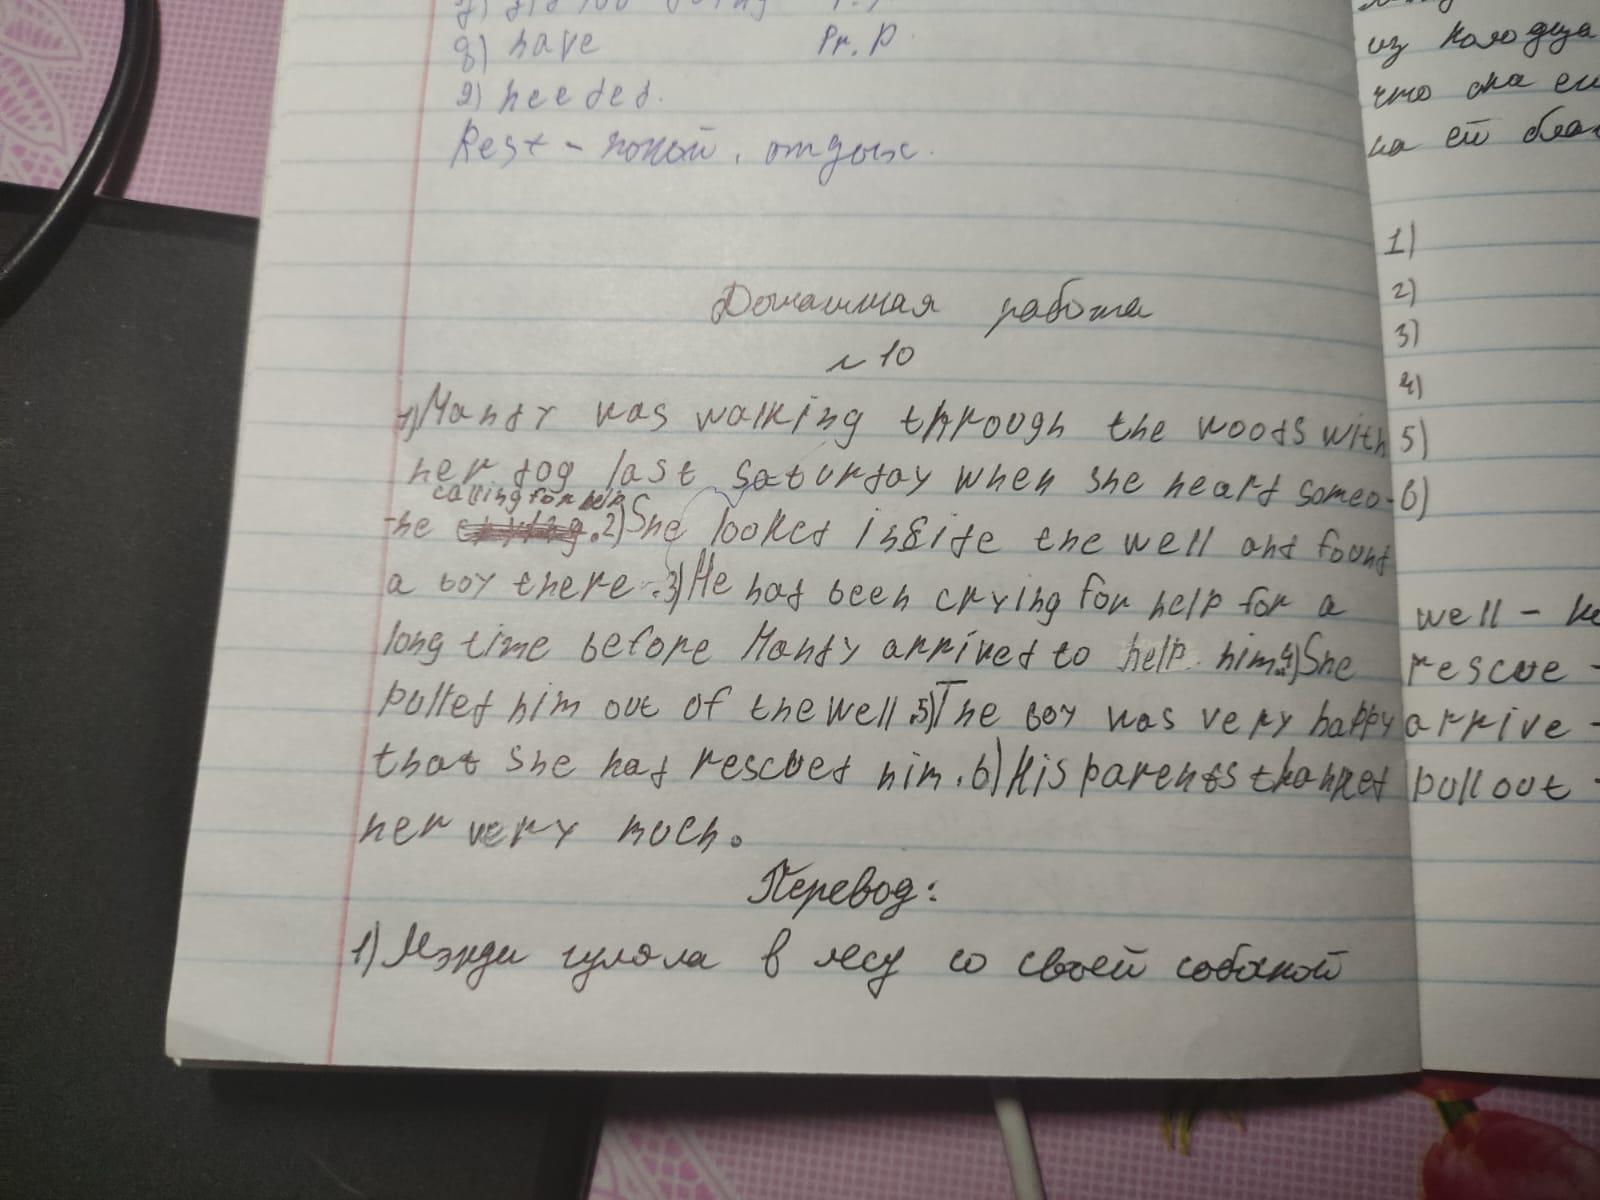 8) have Pr. P.
9) needed.
Rest - покой, отдых.
Домашняя работа
№ 10
1) Mandy was walking through the woods with
her dog last saturday when she heard someo-
calling for help
ne .2) She looked inside the well and found
a boy there. 3) He had been crying for help for a
long time before Mandy arrived to help him. 4) She
pulled him out of the well. 5) The boy was very happy
that she had rescued him. 6) His parents thanked
her very much.
Перевод:
1) Мэнди гуляла в лесу со своей собакой
из колодца
что она
на ей
1)
2)
3)
4)
5)
6)
well -
rescue -
arrive -
pull out -